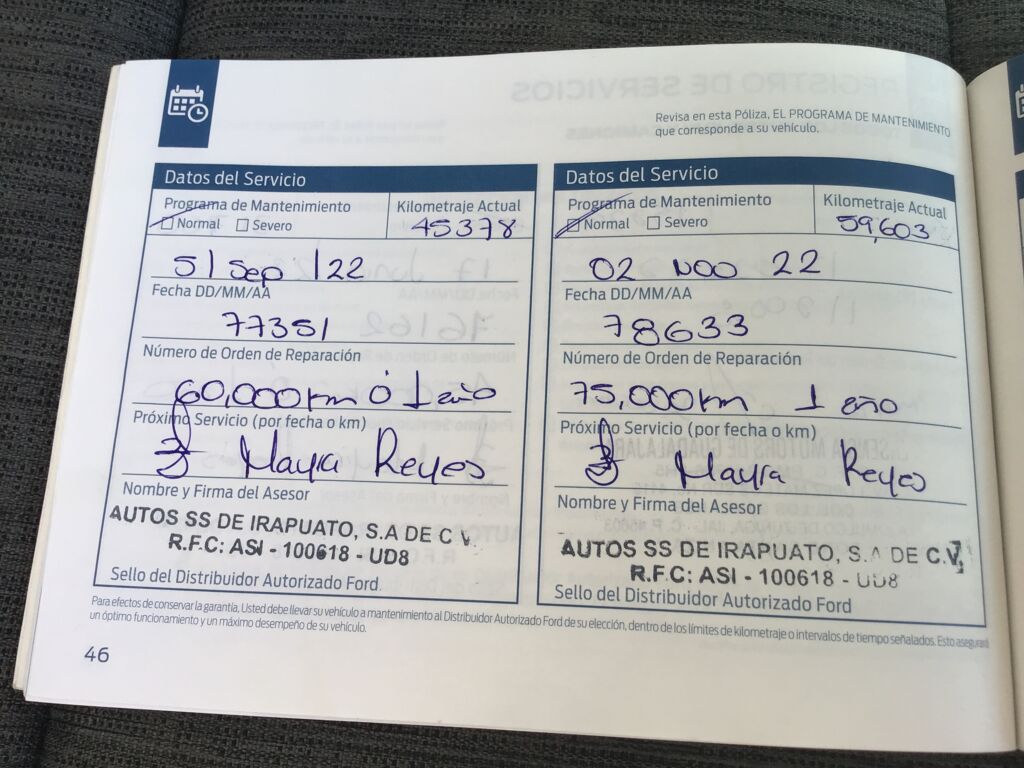 Revisa en esta Póliza, EL PROGRAMA DE MANTENIMIENTO
que corresponde a su vehículo.
Datos del Servicio
Programa de Mantenimiento
Normal Severo
Kilometraje Actual
45378
5/Sep/22
Fecha DD/MM/AA
77351
Número de Orden de Reparación
60,000km ó 1 año
Próximo Servicio (por fecha o km)
Mayra Reyes
Nombre y Firma del Asesor
AUTOS SS DE IRAPUATO, S.A DE C.V.
R.F.C: ASI - 100618 - UD8
Sello del Distribuidor Autorizado Ford
Datos del Servicio
Programa de Mantenimiento
Normal Severo
Kilometraje Actual
59,603
02 NOV 22
Fecha DD/MM/AA
78633
Número de Orden de Reparación
75,000km 1 año
Próximo Servicio (por fecha o km)
Mayra Reyes
Nombre y Firma del Asesor
AUTOS SS DE IRAPUATO, S.A DE C.V.
R.F.C: ASI - 100618 - UD8
Sello del Distribuidor Autorizado Ford
Para efectos de conservar la garantía, Usted debe llevar su vehículo a mantenimiento al Distribuidor Autorizado Ford de su elección, dentro de los límites de kilometraje o intervalos de tiempo señalados. Esto asegurará
un óptimo funcionamiento y un máximo desempeño de su vehículo.
46